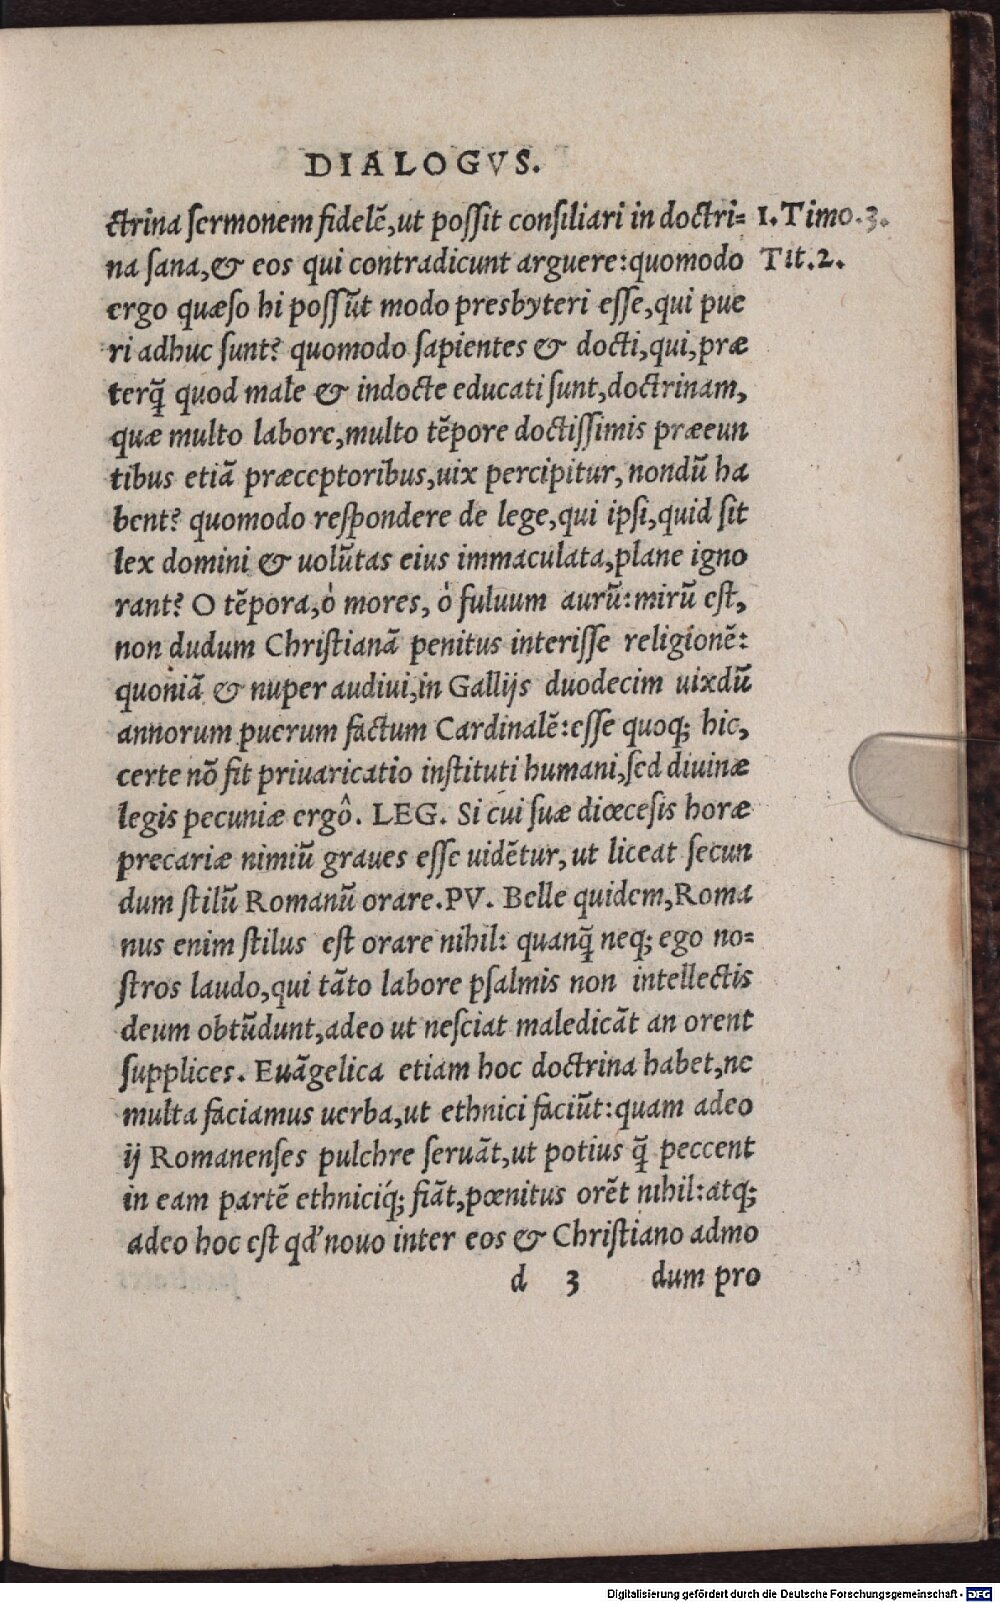 DIALOGVS.
ctrina sermonem fidelē,ut possit consiliari in doctri= 1.Timo.3.
na sana,& eos qui contradicunt arguere:quomodo Tit.2.
ergo quæso hi possūt modo presbyteri esse,qui pue
ri adhuc sunt? quomodo sapientes & docti,qui,præ
terq̄ quod male & indocte educati sunt,doctrinam,
quæ multo labore,multo tēpore doctissimis præeun
tibus etiā præceptoribus,uix percipitur,nondū ha
bent? quomodo respondere de lege,qui ipsi,quid sit
lex domini & uolūtas eius immaculata,plane igno
rant? O tēpora,ò mores, ò fuluum aurū:mirū est,
non dudum Christianā penitus interisse religionē:
quoniā & nuper audiui,in Gallijs duodecim uixdū
annorum puerum factum Cardinalē:esse quoq; hic,
certe nō fit priuaricatio instituti humani,sed diuinæ
legis pecuniæ ergô. LEG. Si cui suæ diœcesis horæ
precariæ nimiū graues esse uidētur,ut liceat secun
dum stilū Romanū orare.PV. Belle quidem,Roma
nus enim stilus est orare nihil: quanq̄ neq; ego no=
stros laudo,qui tāto labore psalmis non intellectis
deum obtūdunt,adeo ut nesciat maledicāt an orent
supplices. Euāgelica etiam hoc doctrina habet,ne
multa faciamus uerba,ut ethnici faciūt:quam adeo
ij Romanenses pulchre seruāt,ut potius q̄ peccent
in eam partē ethniciq́; fiāt,pœnitus orēt nihil:atq;
adeo hoc est qđ nouo inter eos & Christiano admo
d 3 dum pro
Digitalisierung gefördert durch die Deutsche Forschungsgemeinschaft - DFG